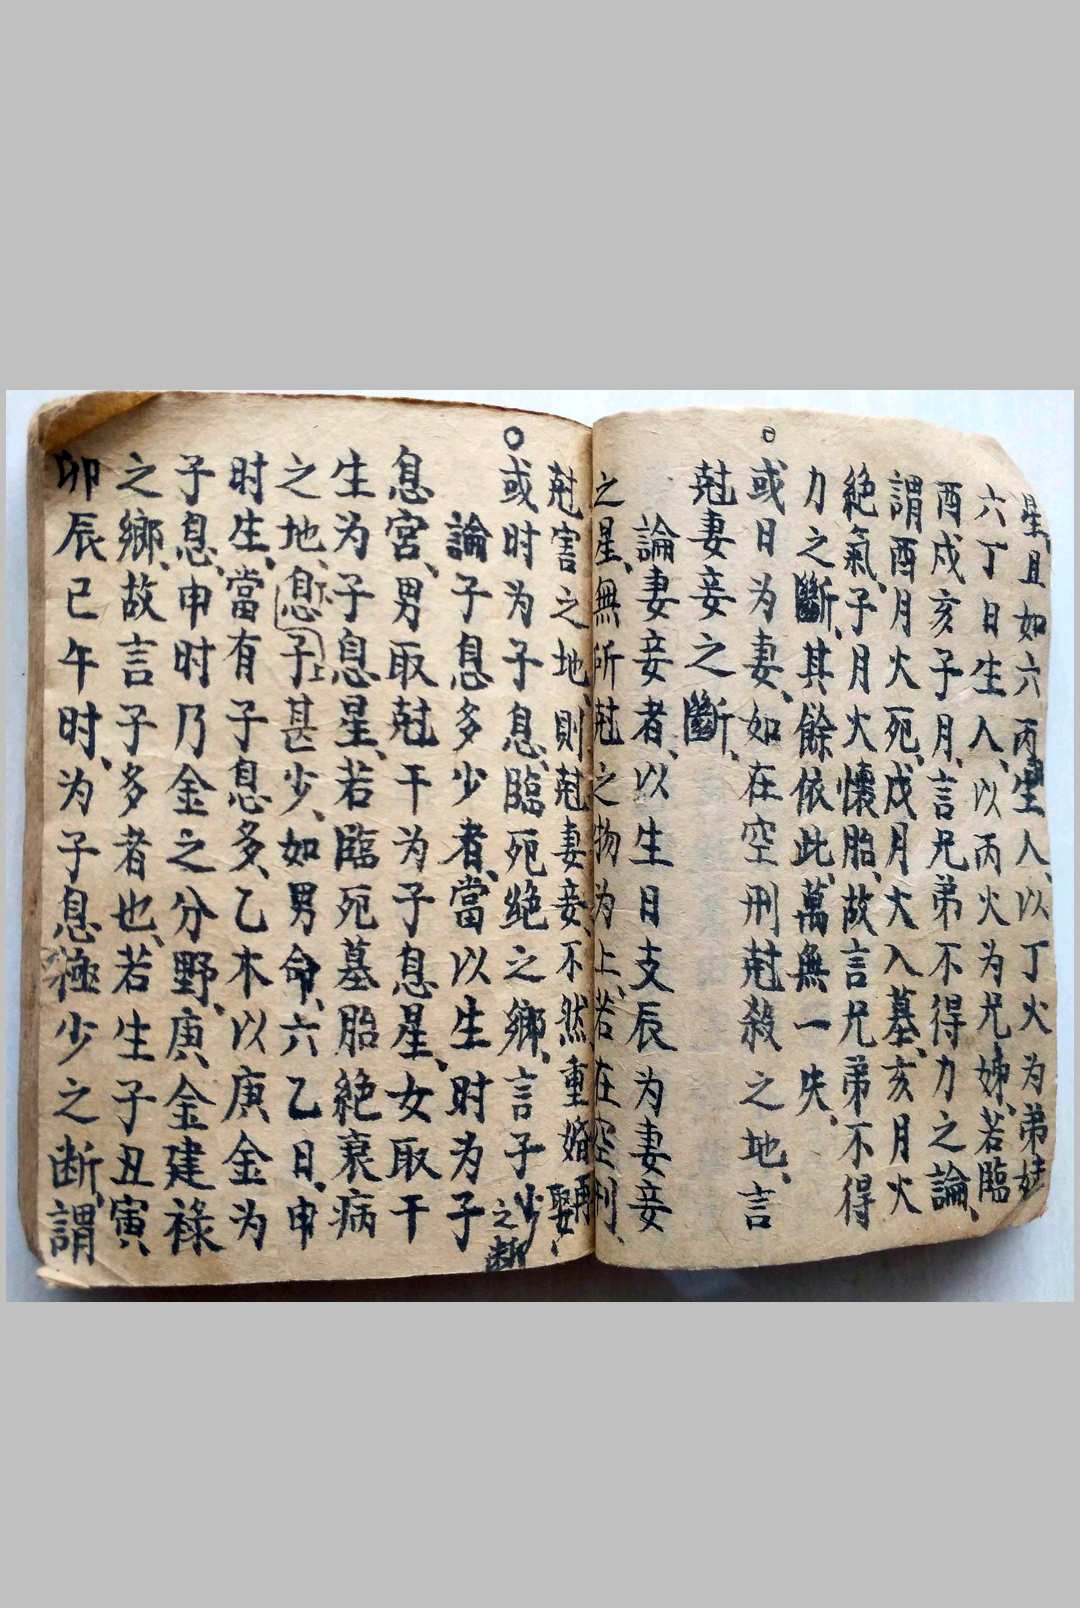 星、且如六丙生人、以丁火为弟妹
六丁日生人、以丙火为兄姊、若臨
酉戌亥子月、言兄弟不得力之論、
謂酉月火死、戌月火入墓、亥月火
絕氣、子月火懷胎、故言兄弟不得
力之斷、其餘依此、萬無一失、
○或日为妻、如在空刑尅殺之地、言
尅妻妾之斷、
論妻妾者、以生日支辰为妻妾
之星、無所尅之物为上、若在空刑、
尅害之地、則尅妻妾、不然重婚再娶、
○或时为子息、臨死绝之鄉、言子少之断
論子息多少者、當以生时为子
息宮、男取尅干为子息星、女取干
生为子息星、若臨死墓胎絕衰病
之地、断息子上甚少、如男命、六乙日、申
时生、當有子息多、乙木以庚金为
子息、申时乃金之分野、庚金建祿
之鄉、故言子多者也、若生子丑寅、
卯辰巳午时、为子息極少之断、謂